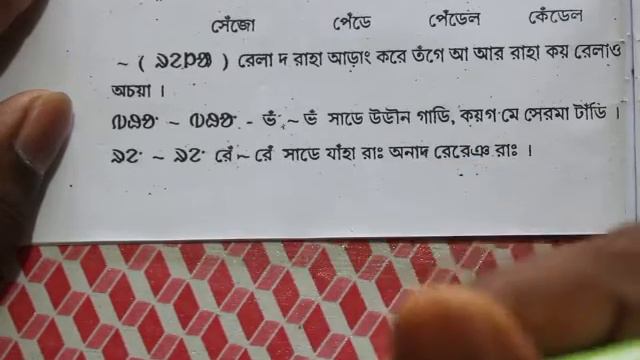 সেঁজো পেঁড়ে পেঁড়েল কেঁড়েল
~ ( ᱨᱮᱞᱟ ) রেলা দ রাহা আড়াং করে তঁগে আ আর রাহা কয় রেলাও
অচয়া ।
~ - ভঁ ~ ভঁ সাড়ে উডৗন গাডি, কয়গ মে সেরমা টাঁডি ।
~ রেঁ ~ রেঁ সাড়ে যাঁহা রাঃ অনাদ রেরেঞ রাঃ ।